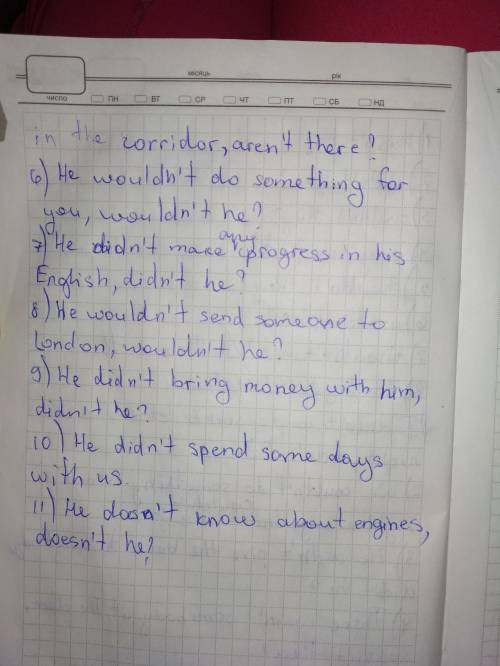 місяць рік
число ПН ВТ СР ЧТ ПТ СБ НД
in the corridor, aren't there?
6) He wouldn't do something for
you, wouldn't he?
any
7) He didn't make progress in his
English, didn't he?
8) He wouldn't send someone to
London, wouldn't he?
9) He didn't bring money with him,
didn't he?
10) He didn't spend some days
with us.
11) He dosn't know about engines,
doesn't he?